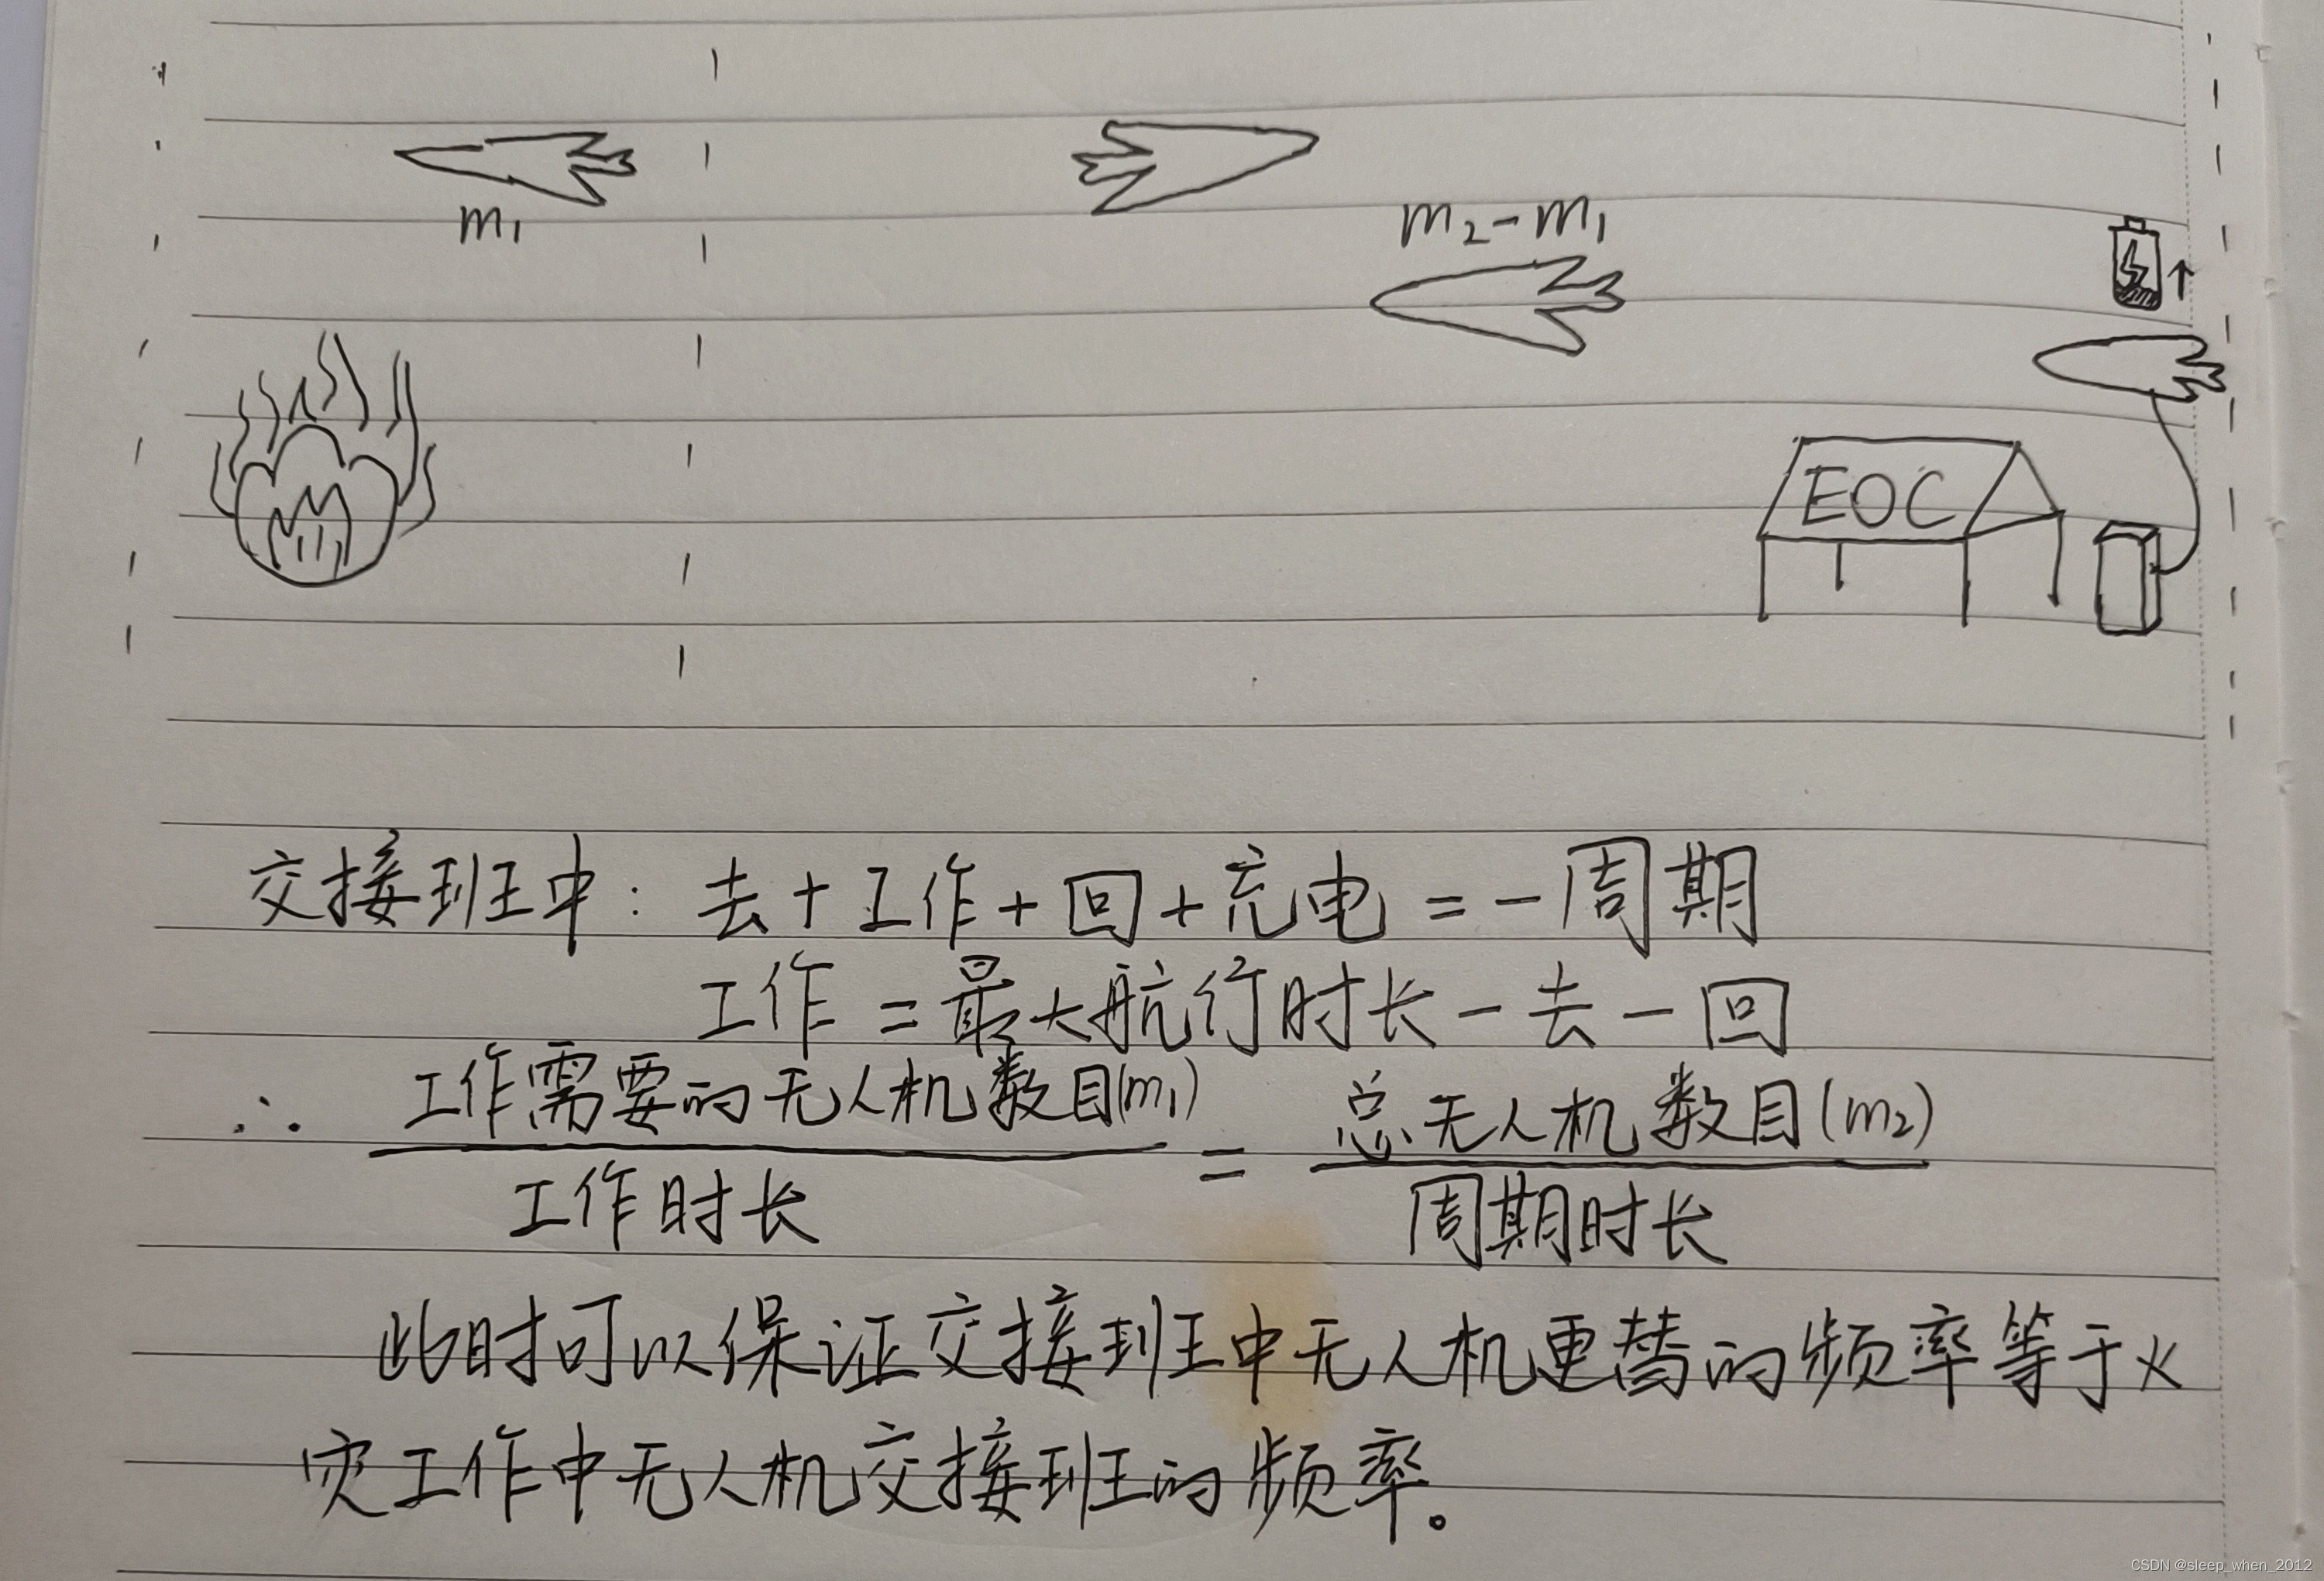 m₁
m₂-m₁
EOC
交接班中：去+工作+回+充电=一周期
工作=最大航行时长-去-回
∴ 工作需要的无人机数目(m₁) = 总无人机数目(m₂)
工作时长 周期时长
此时可以保证交接班中无人机更替的频率等于火
灾工作中无人机交接班的频率。
CSDN @sleep_when_2012